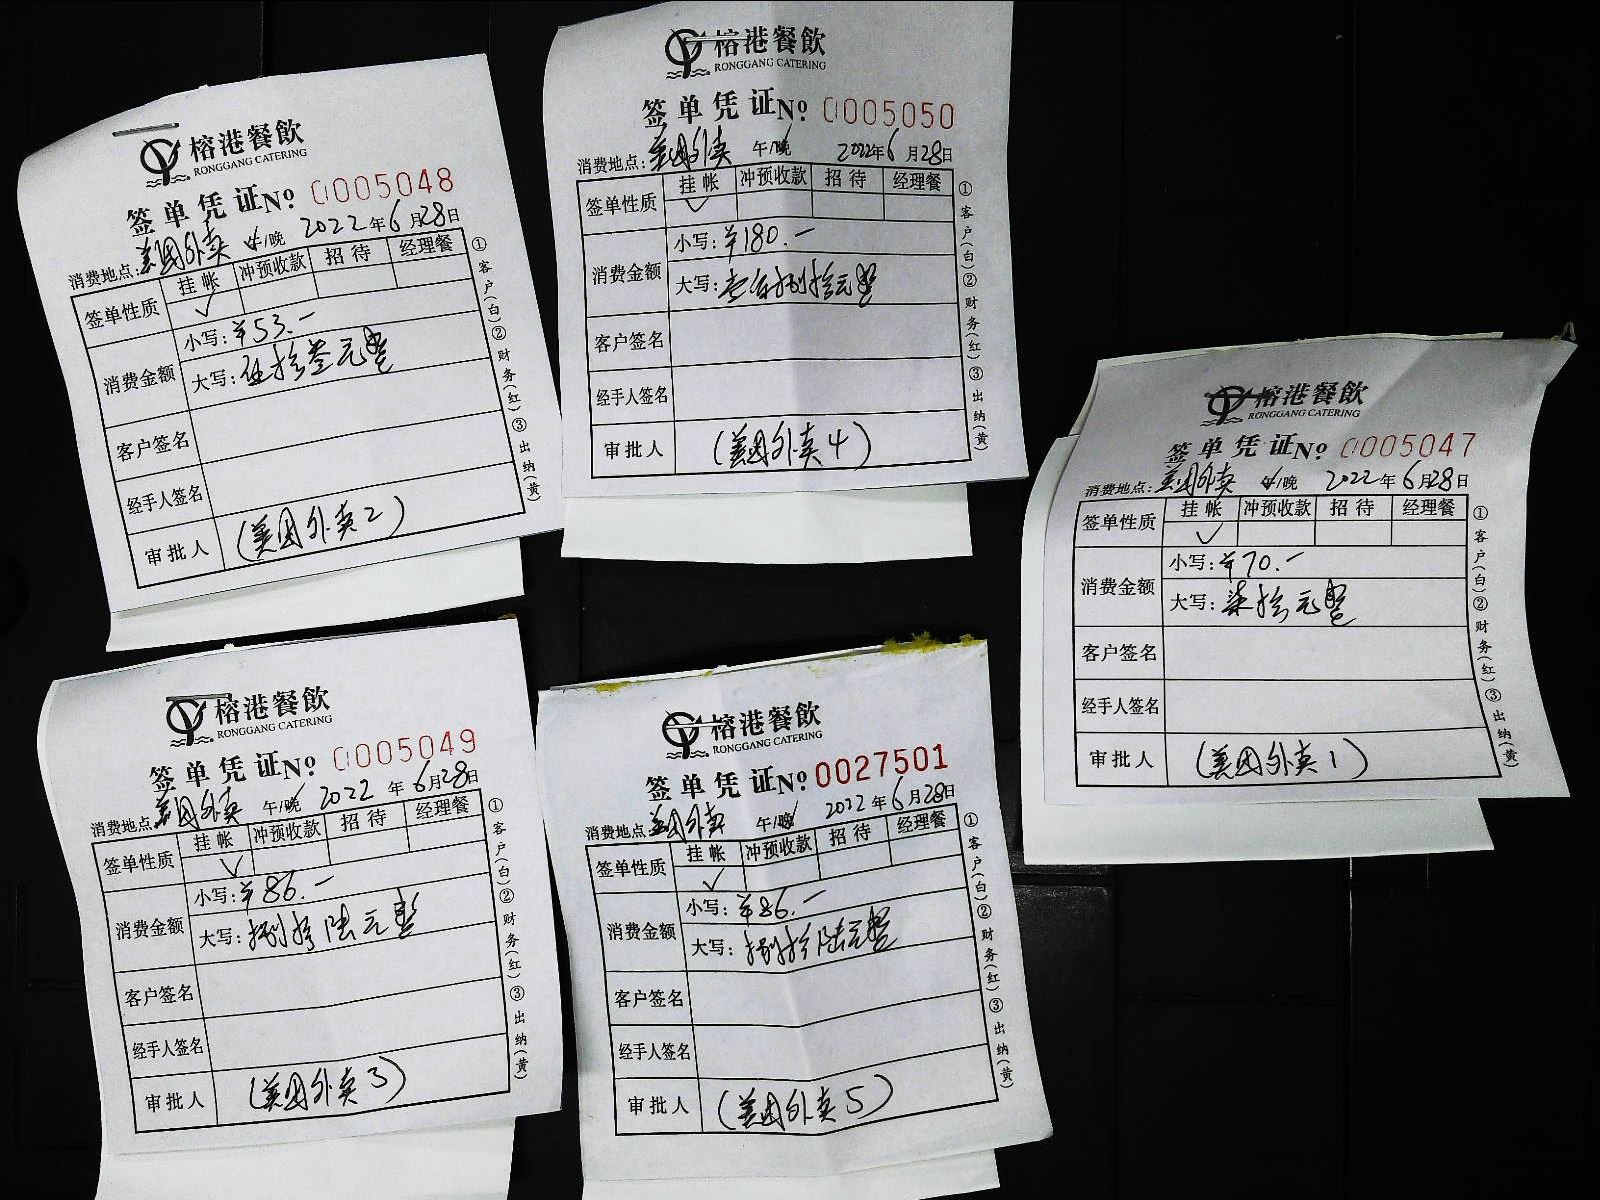 榕港餐飲
RONGGANG CATERING
签单凭证No 0005048
消费地点:美团外卖 午/晚 2022年6月28日
签单性质 挂帐 冲预收款 招待 经理餐
✓
消费金额 小写:¥53.-
大写:伍拾叁元整
客户签名
经手人签名
审批人 (美团外卖2)
①客户(白)②财务(红)③出纳(黄)
榕港餐飲
RONGGANG CATERING
签单凭证No 0005050
消费地点:美团外卖 午/晚 2022年6月28日
签单性质 挂帐 冲预收款 招待 经理餐
✓
消费金额 小写:¥180.-
大写:壹佰捌拾元整
客户签名
经手人签名
审批人 (美团外卖4)
①客户(白)②财务(红)③出纳(黄)
榕港餐飲
RONGGANG CATERING
签单凭证No 0005047
消费地点:美团外卖 午/晚 2022年6月28日
签单性质 挂帐 冲预收款 招待 经理餐
✓
消费金额 小写:¥70.-
大写:柒拾元整
客户签名
经手人签名
审批人 (美团外卖1)
①客户(白)②财务(红)③出纳(黄)
榕港餐飲
RONGGANG CATERING
签单凭证No 0005049
消费地点 美团外卖 午/晚 2022年6月28日
签单性质 挂帐 冲预收款 招待 经理餐
✓
消费金额 小写:¥86.-
大写:捌拾陆元整
客户签名
经手人签名
审批人 (美团外卖3)
①客户(白)②财务(红)③出纳(黄)
榕港餐飲
RONGGANG CATERING
签单凭证No 0027501
消费地点 美团外卖 午/晚 2022年6月28日
签单性质 挂帐 冲预收款 招待 经理餐
✓
消费金额 小写:¥86.-
大写:捌拾陆元整
客户签名
经手人签名
审批人 (美团外卖5)
①客户(白)②财务(红)③出纳(黄)